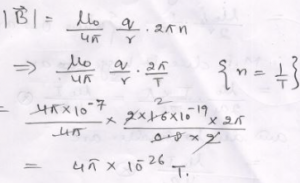 |B⃗| = μ₀/4π q/r · 2πn
⇒ μ₀/4π q/r · 2π/T { n = 1/T }
= 4π×10⁻⁷/4π × 2×1.6×10⁻¹⁹×2π/0.8×2
= 4π × 10⁻²⁶ T.